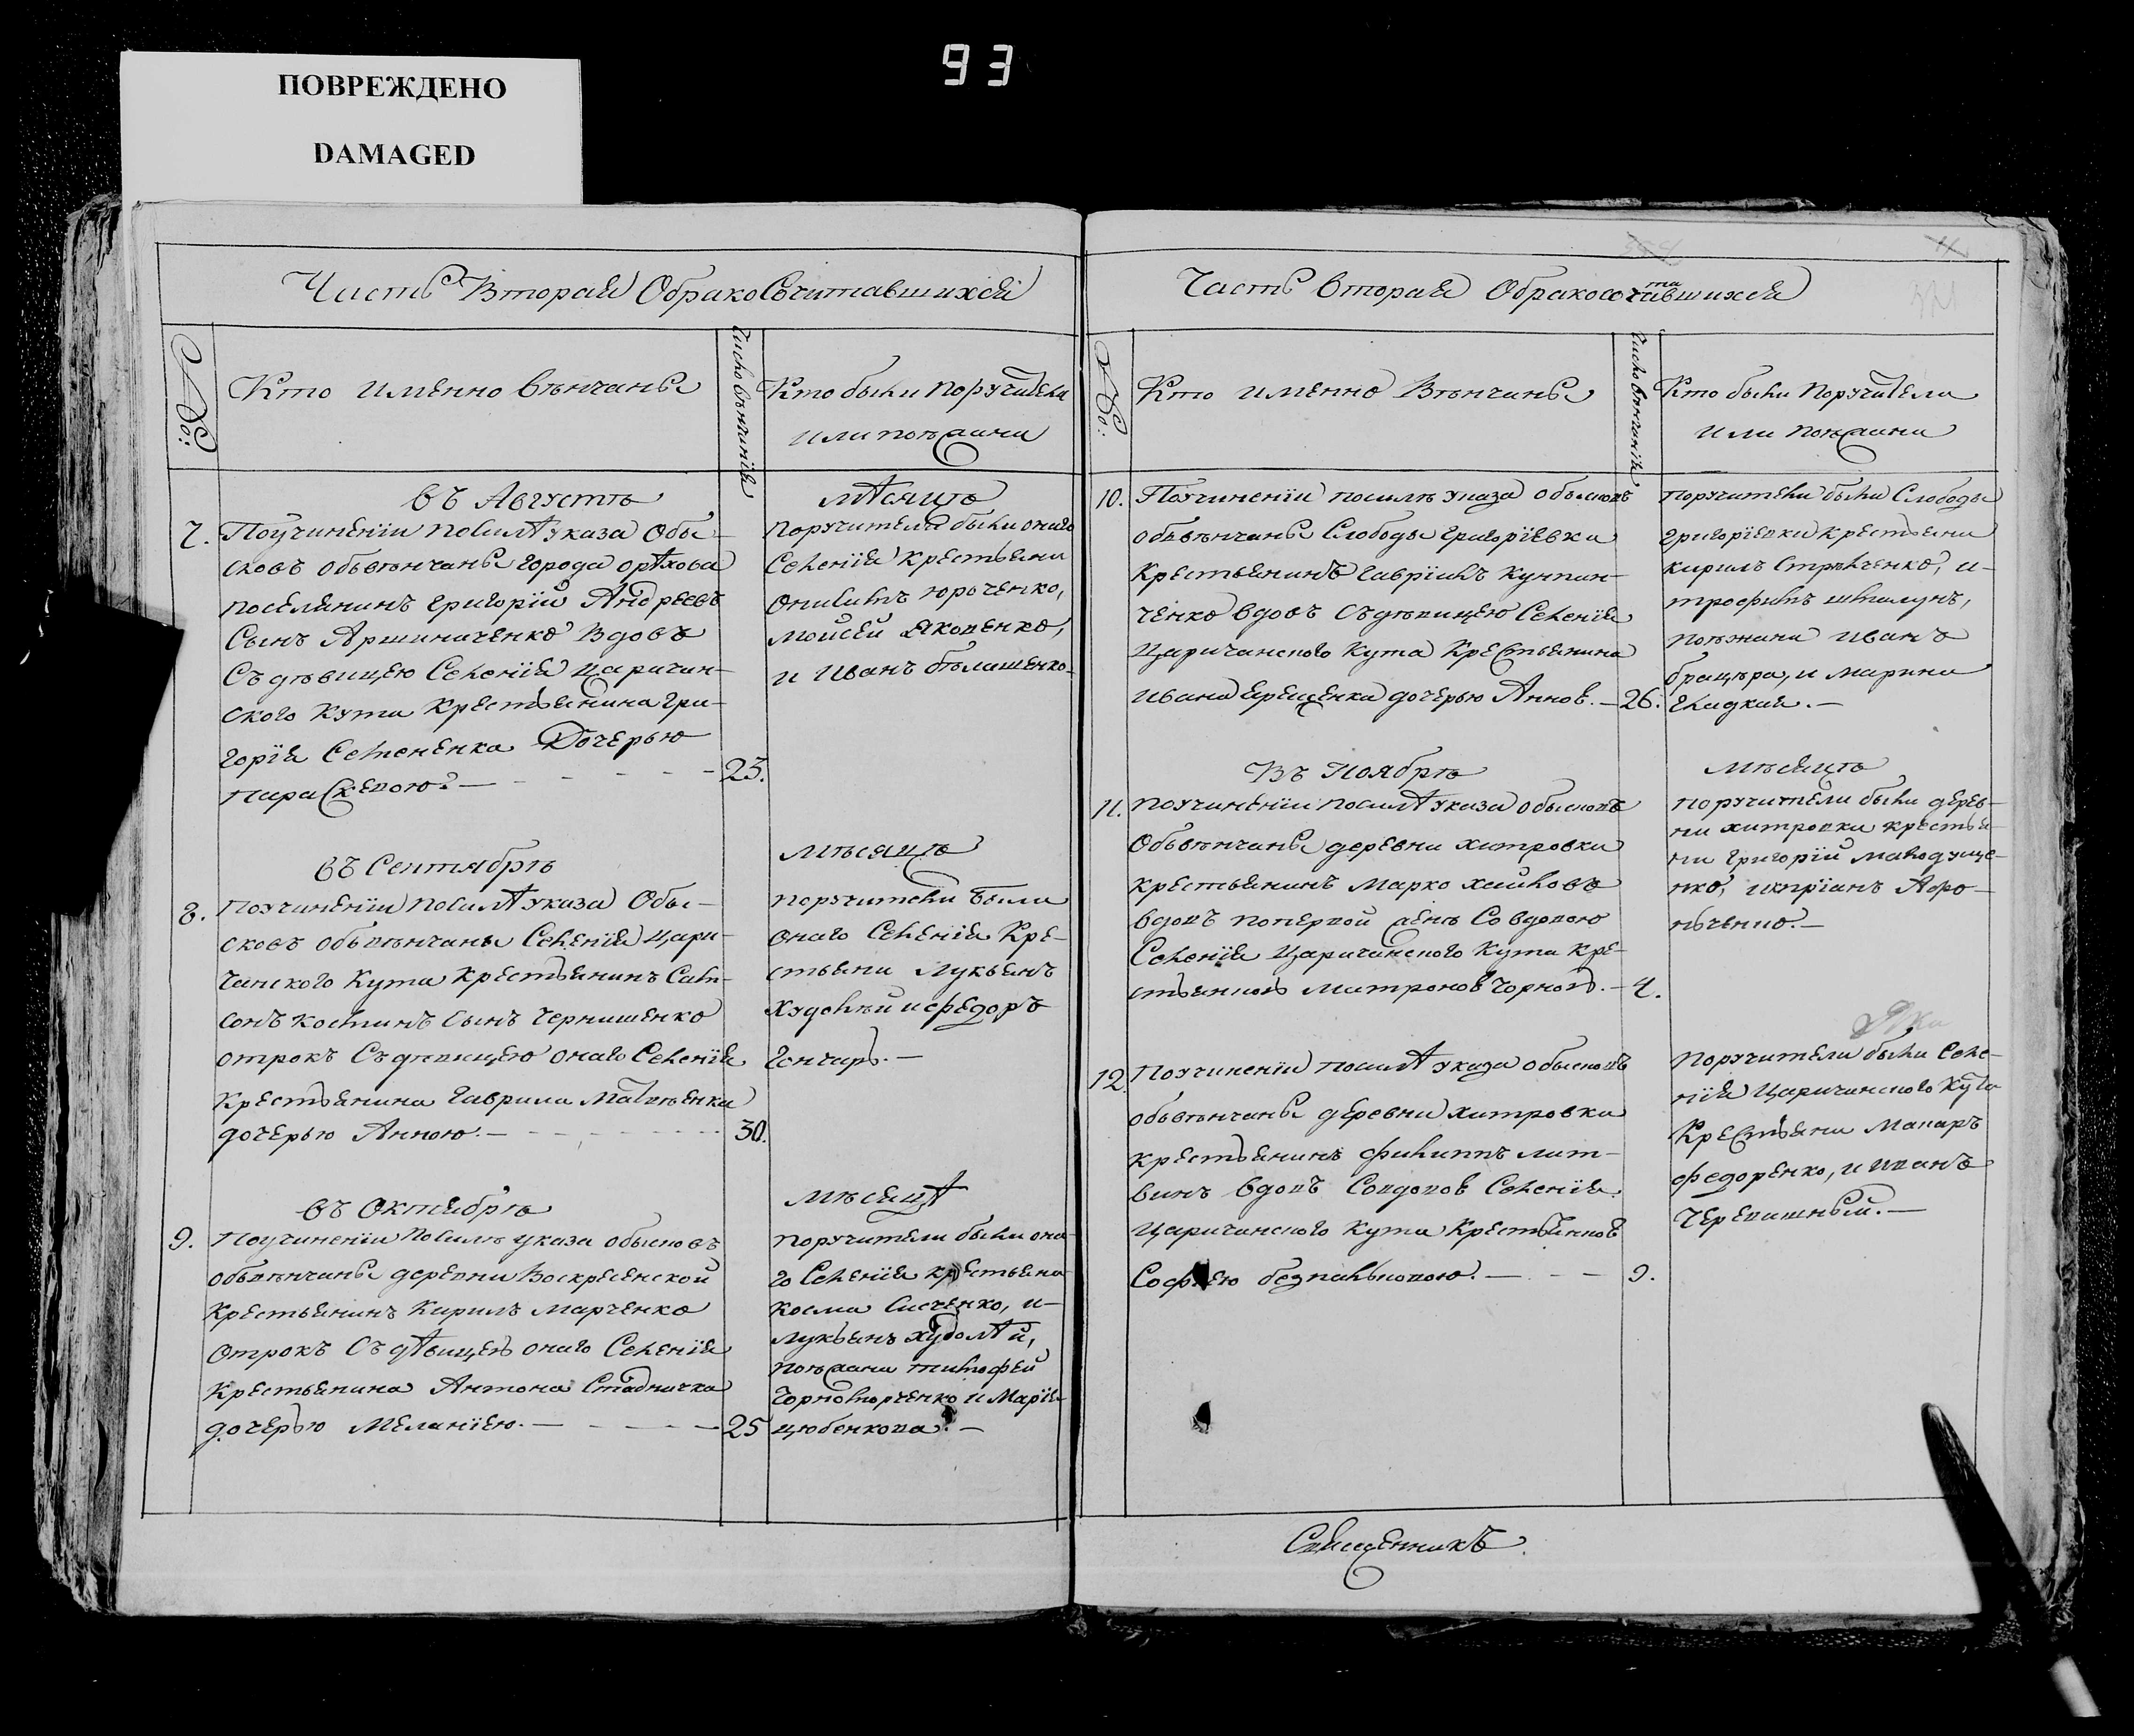 93
ПОВРЕЖДЕНО
DAMAGED
Часть Вторая Обракосочитавшихся
№:
Кто именно венчаны
Число венчания
Кто были поручители
или поезжани
въ Августѣ
мѣсяцѣ
7. Поучинении посилѣ указа Обы-
сковъ обвѣнчаны города орѣхова
поселянинъ григорій Андреевъ
Сынъ Аршиниченко вдовъ
Съ дѣвицею Селенія Царичан-
ского Кута Крестьянина гри-
горія Семененка Дочерью
параскевою. — 23.
поручители были онаго
Селенія Крестьяни
юрченко,
моисей Яковенко,
и Иванъ бѣлашенко
въ Сентябрѣ
мѣсяцѣ
8. поучинении посилѣ указа Обы-
сковъ обвѣнчаны Селенія цари-
чанского Кута крестьянинъ Сам-
сонъ косминъ сынъ чернишенко
отрокъ Съ дѣвицею онаго Селенія
Крестьянина гаврила Матвѣенка
дочерью Анною. — 30.
поручители были
онаго Селенія Кре-
стьяни Лукьянъ
худолѣй и федоръ
гончаръ. —
въ Октябрѣ
мѣсяцѣ
9. поучинении посилѣ указа обысковъ
обвѣнчаны деревни Воскресенской
Крестьянинъ Кирилъ марченко
отрокъ Съ дѣвицею онаго Селенія
Крестьянина Антона Стадничка
дочерью меланіею. — 25
поручители были она-
го Селенія крестьяна
косма Сисченко, и-
лукьянъ худолѣй,
поезжани тимофей
Чорноморченко и Марія
цюбенкова. —
Часть вторая Обракосочитавшихся
№:
Кто именно Венчаны
Число венчания
Кто были Поручители
или поезжани
10. Поучинении посилѣ указа обысковъ
обвѣнчаны Слободы григоріевки
крестьянинъ гавріилъ
вдовъ съ дѣвицею Селенія
Царичанского Кута Крестьянина
ивана Ерещенка дочерью Анною. — 26.
поручители были Слободы
григоріевки Крестьяни
кирилъ Стрѣлченко, и-
трофимъ шталунъ,
поезжани иванъ
и марина
гладкая. —
Въ Ноябрѣ
мѣсяцѣ
11. поучинении посилѣ указа обысковъ
Обвѣнчаны деревни хитровки
крестьянинъ марко хайловъ
вдовъ поперлой женѣ Со вдовою
Селенія Царичанского Кута Кре-
стьянкою матроною Чорною. — 4.
поручители были дерев-
ни хитровки крестья-
ни григорій
нко, икпріанъ
12. Поучинении посилѣ указа обысковъ
обвѣнчаны деревни хитровки
крестьянинъ филиппъ лит-
винъ вдовъ Совдовою Селенія
Царичанского кута Крестьянкою
Софією безпальковою. — 9.
Поручители были Селе-
нія Царичанского Кута
Крестьяни Макаръ
федоренко, и иванъ
Черевишный. —
Священникъ